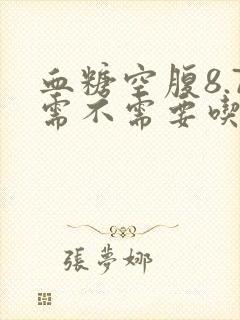 血糖空腹8.7
需不需要喫
張夢娜